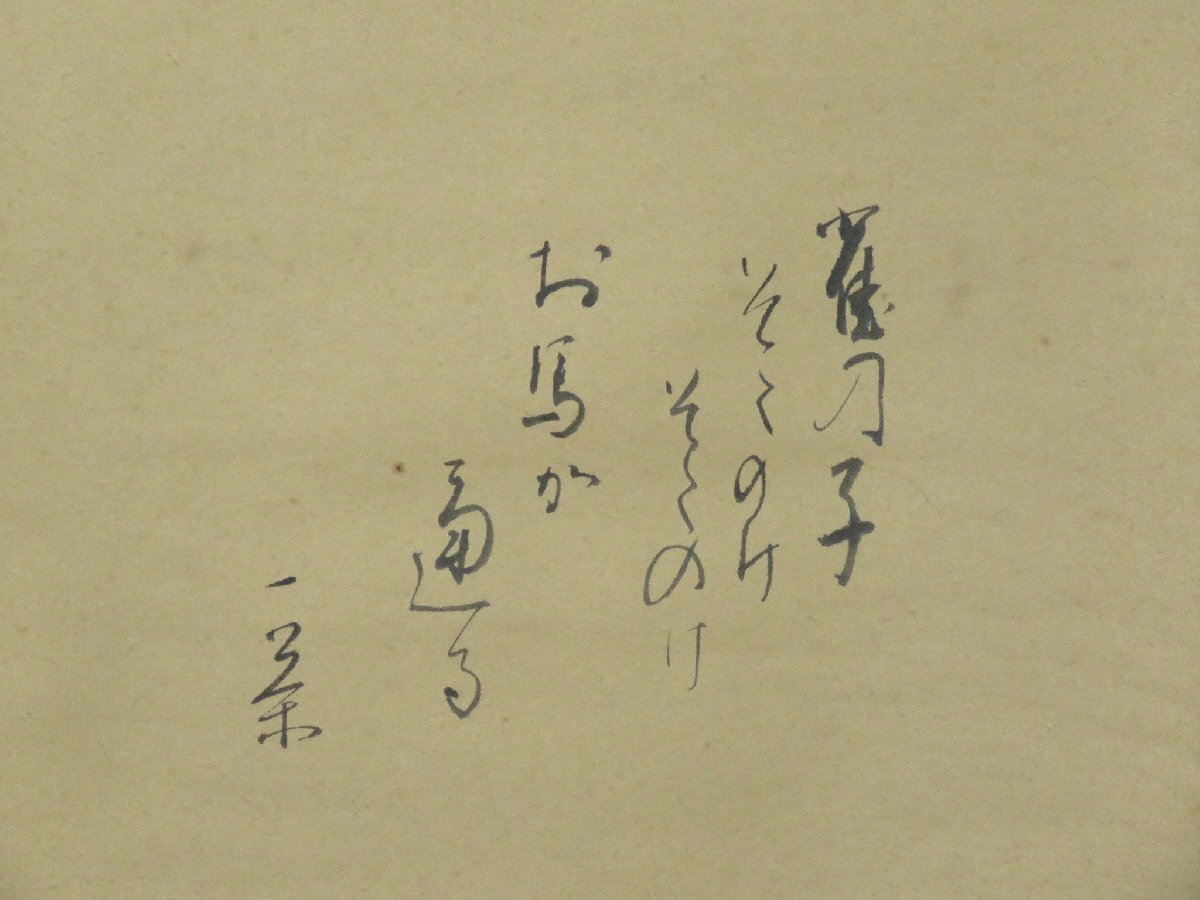 雀乃子
そこのけ
そこのけ
お馬か
通る
一茶